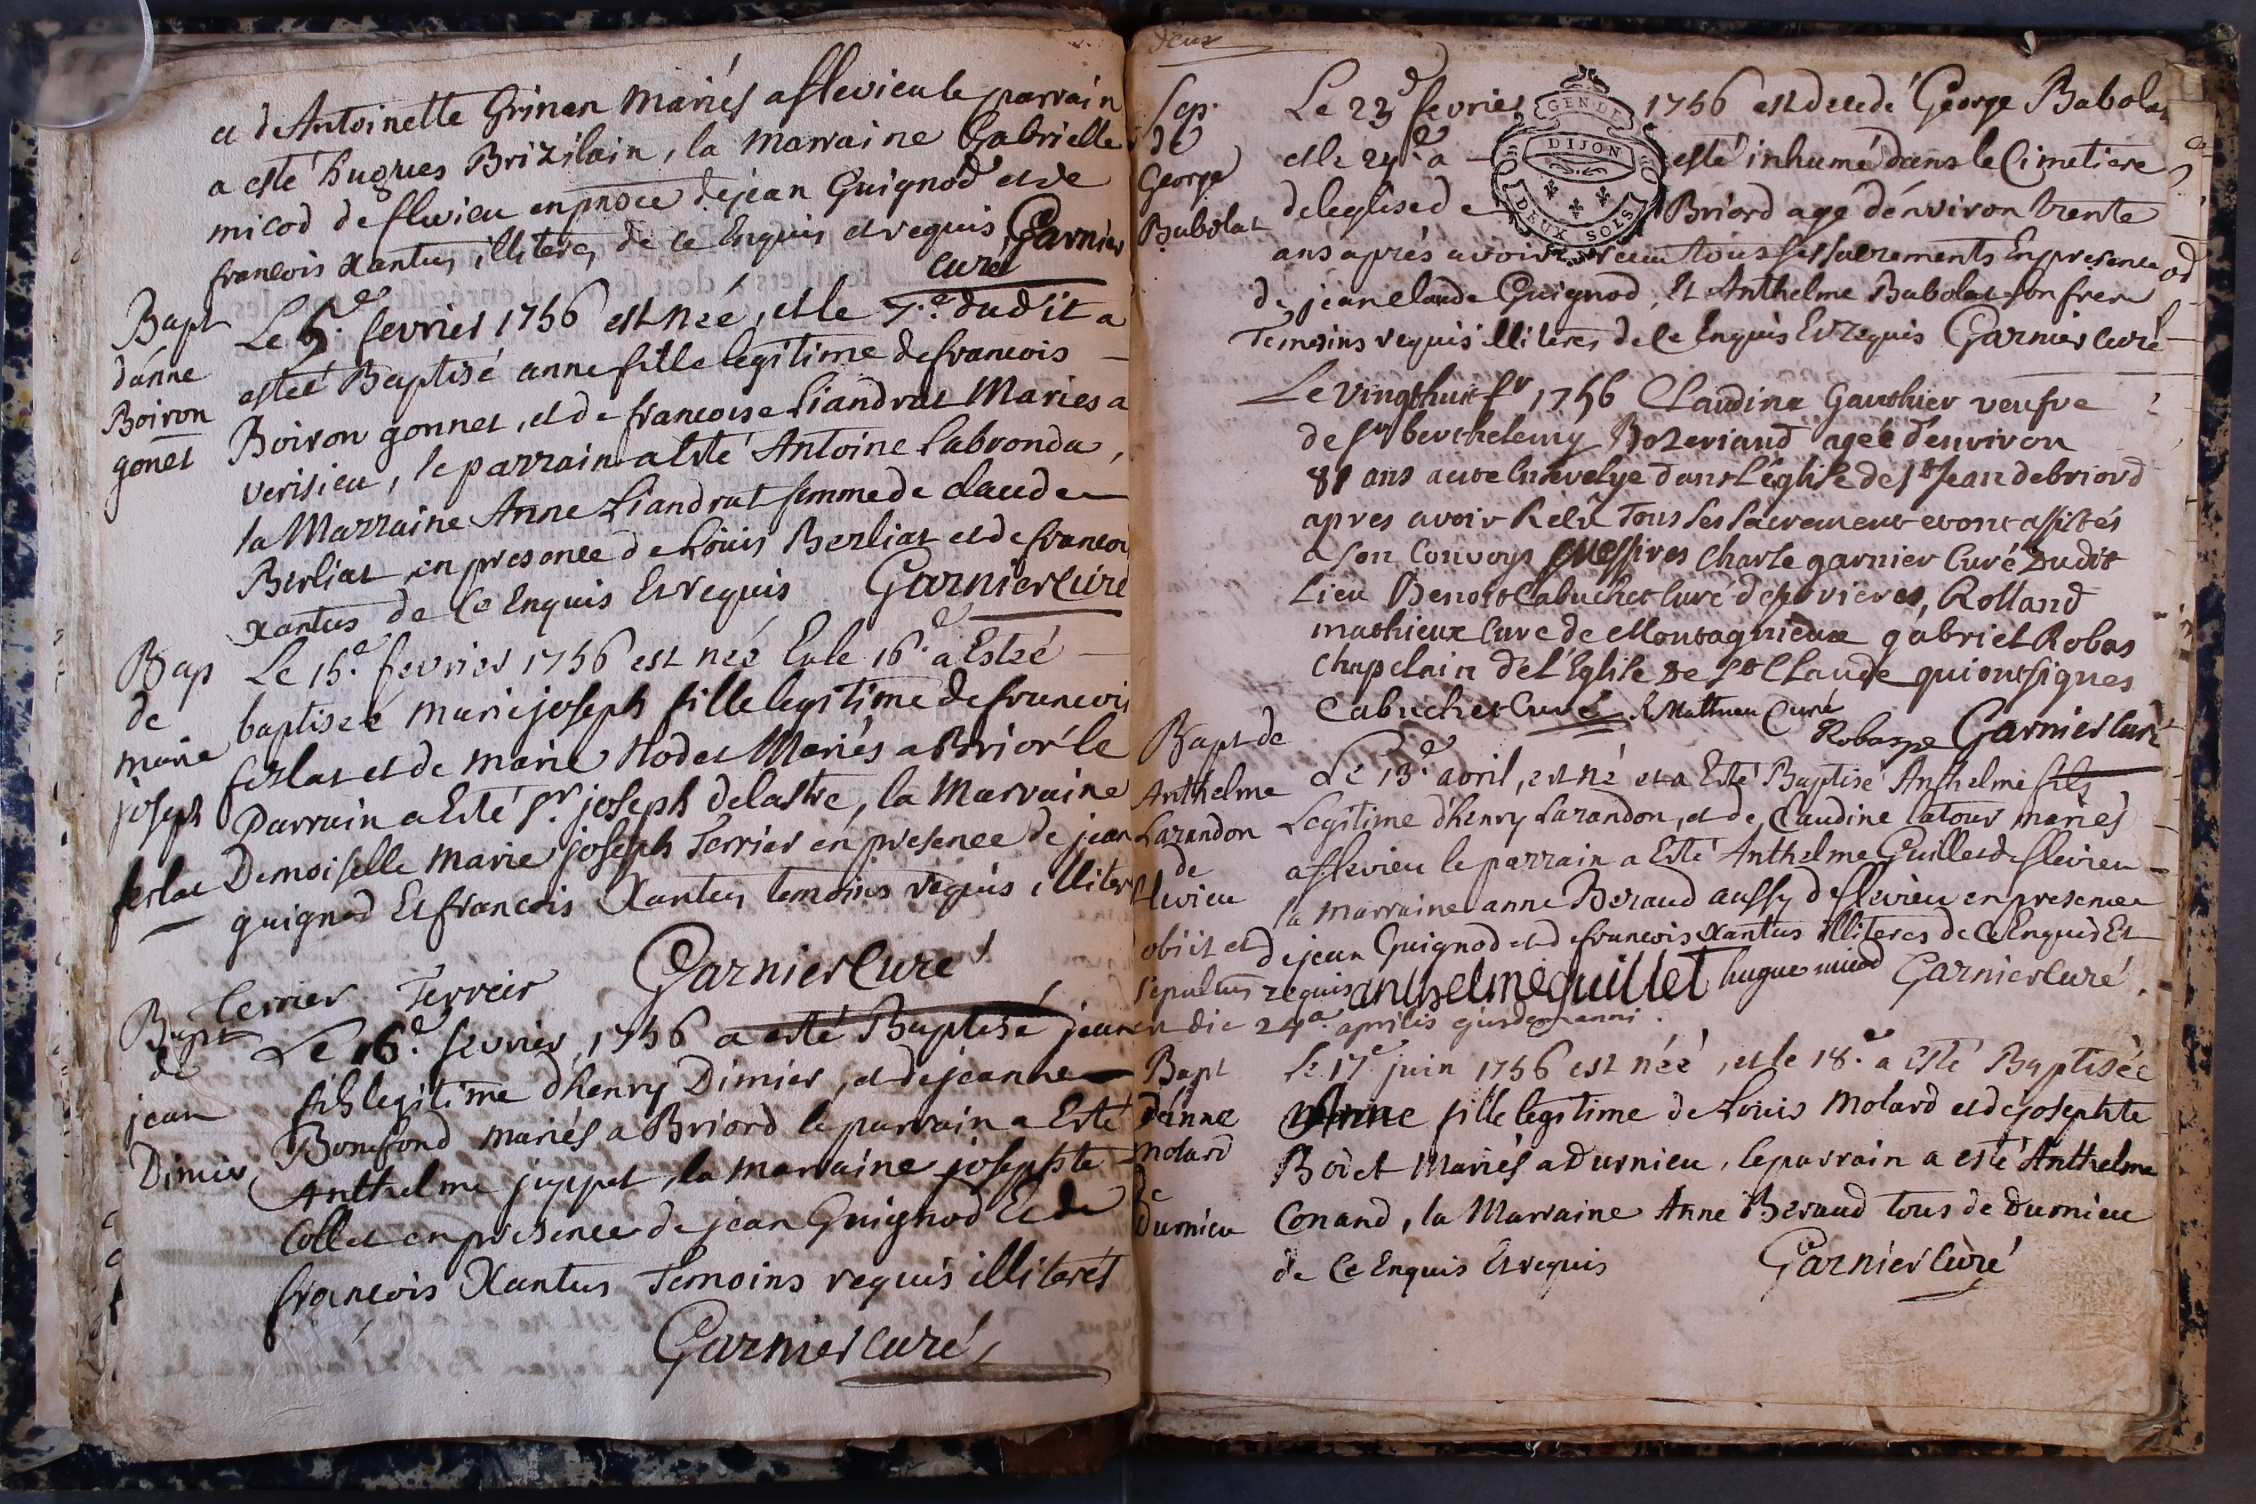 et de Antoinette Grinan Mariés a flevieu le parrain
a esté hugues Brizilain, la Marraine Gabrielle
micod de flevieu en pnce de jean Guignod et de
francois Xantus illiteres de ce Enquis et requis Garnier
curé
Bapt
d'anne
Boiron
gonet
Le 5.e fevrier 1756 est née, et le 7.e dudit a
esteé Baptisé anne fille legitime de francois
Boiron gonnet, et de francoise Liandrat Maries a
verisieu, le parrain a Esté Antoine Labronda,
la Marraine Anne Liandrat femme de claude
Berliat en presence de Louis Berliat et de francoi
Xantus de Ce Enquis Et requis Garnier Curé
Bap
de
marie
joseph
ferlat
Le 15.e fevrier 1756 est née Et le 16.e a Esté
baptiseé marie joseph fille legitime de francois
ferlat et de marie Nodet Mariés a Brior le
Parrain a Esté sr. joseph delastre, la Marraine
Demoiselle marie joseph Terrier en presence de jean
guignod Et francois Xantus temoins requis illiter
Garnier Curé
Terrier Terreir
Bapt
de
jean
Dimier
Le 16.e fevrier 1756 a esté Baptisé jean
fils legitime d'henry Dimier, et de jeanne
Bonefond mariés a Briord le parrain a Esté
Anthelme juppet, la marraine josephte
Collet en presence de jean Guignod Et de
francois Xantus Temoins requis illiterés
Garnier curé
deux
GEN DE
DIJON
DEUX SOLS
Sep.
de
George
Babolat
Le 23.e fevrier 1756 est decedé George Babolat
et le 24.e a esté inhumé dans le Cimetiere
de leglise de Briord agé d'environ trente
ans aprés avoir receu tous ses sacrements En presence
de jean claude Guignod, Et Anthelme Babolat son frere
Temoins requis illiteres de Ce Enquis Et requis Garnier curé
Le vingt huit fr 1756 Claudine Gauthier veufve
de sr berthelemy Bozeriand agéé d'environ
81 ans a eté Ensevelye dans L'église de st Jean de briord
apres avoir Recû Tous les sacrement et ont assistés
a son Convoys Messires Charle garnier Curé Dudit
Lieu Benoit Cabuchet curé de porieres, Rolland
mathieux Curé de Montagnieux gabriel Robas
Chapelain de l'Eglise de st CLaude qui ont signes
Cabuchet Curé R Mathieu Curé
Robas p Garnier curé
Bapt de
Anthelme
Lazandon
de
flevieu
obiit et
sepultus
Le 13.e avril, est né et a Esté Baptisé Anthelme fils
Legitime d'henry Lazandon, et de Claudine latour mariés
a flevieu le parrain a Esté Anthelme Guillet de flevieu
la marraine anne Beraud aussy de flevieu en presence
de jean Guignod et de francois Xantus illiteres de Ce Enquis Et
requis anthelme guillet hugue micod Garnier Curé
in die 24a. aprilis ejusdem anni.
Bapt
d'anne
molard
de
durnieu
Le 17e juin 1756 est néé, et le 18.e a esté Baptisée
Anne fille legitime de Louis Molard et de josephte
Bodet Mariés a Durnieu, le parrain a esté Anthelme
Conand, la Marraine Anne Beraud tous de Durnieu
de Ce Enquis Et requis Garnier Curé